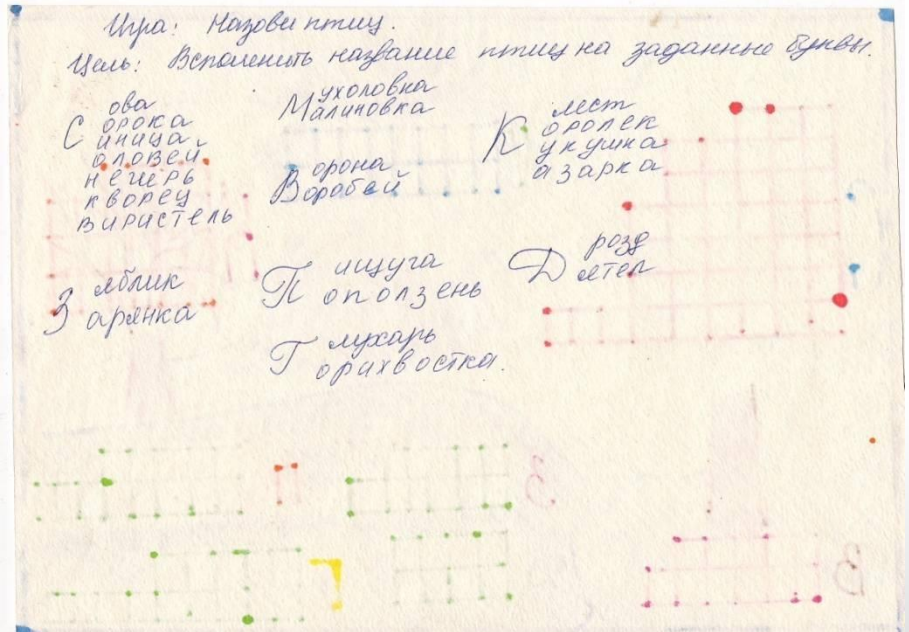 Игра: Назови птиц.
Цель: Вспомнить название птиц на заданные буквы.
С
ова
орока
иница
оловей
негирь
кворец
виристель
М
ухоловка
алиновка
В
орона
оробей
К
лест
оролек
укушка
азарка
З
яблик
арянка
П
ищуга
оползень
Д
розд
ятел
Г
лухарь
орихвостка.
П
З
Г
В